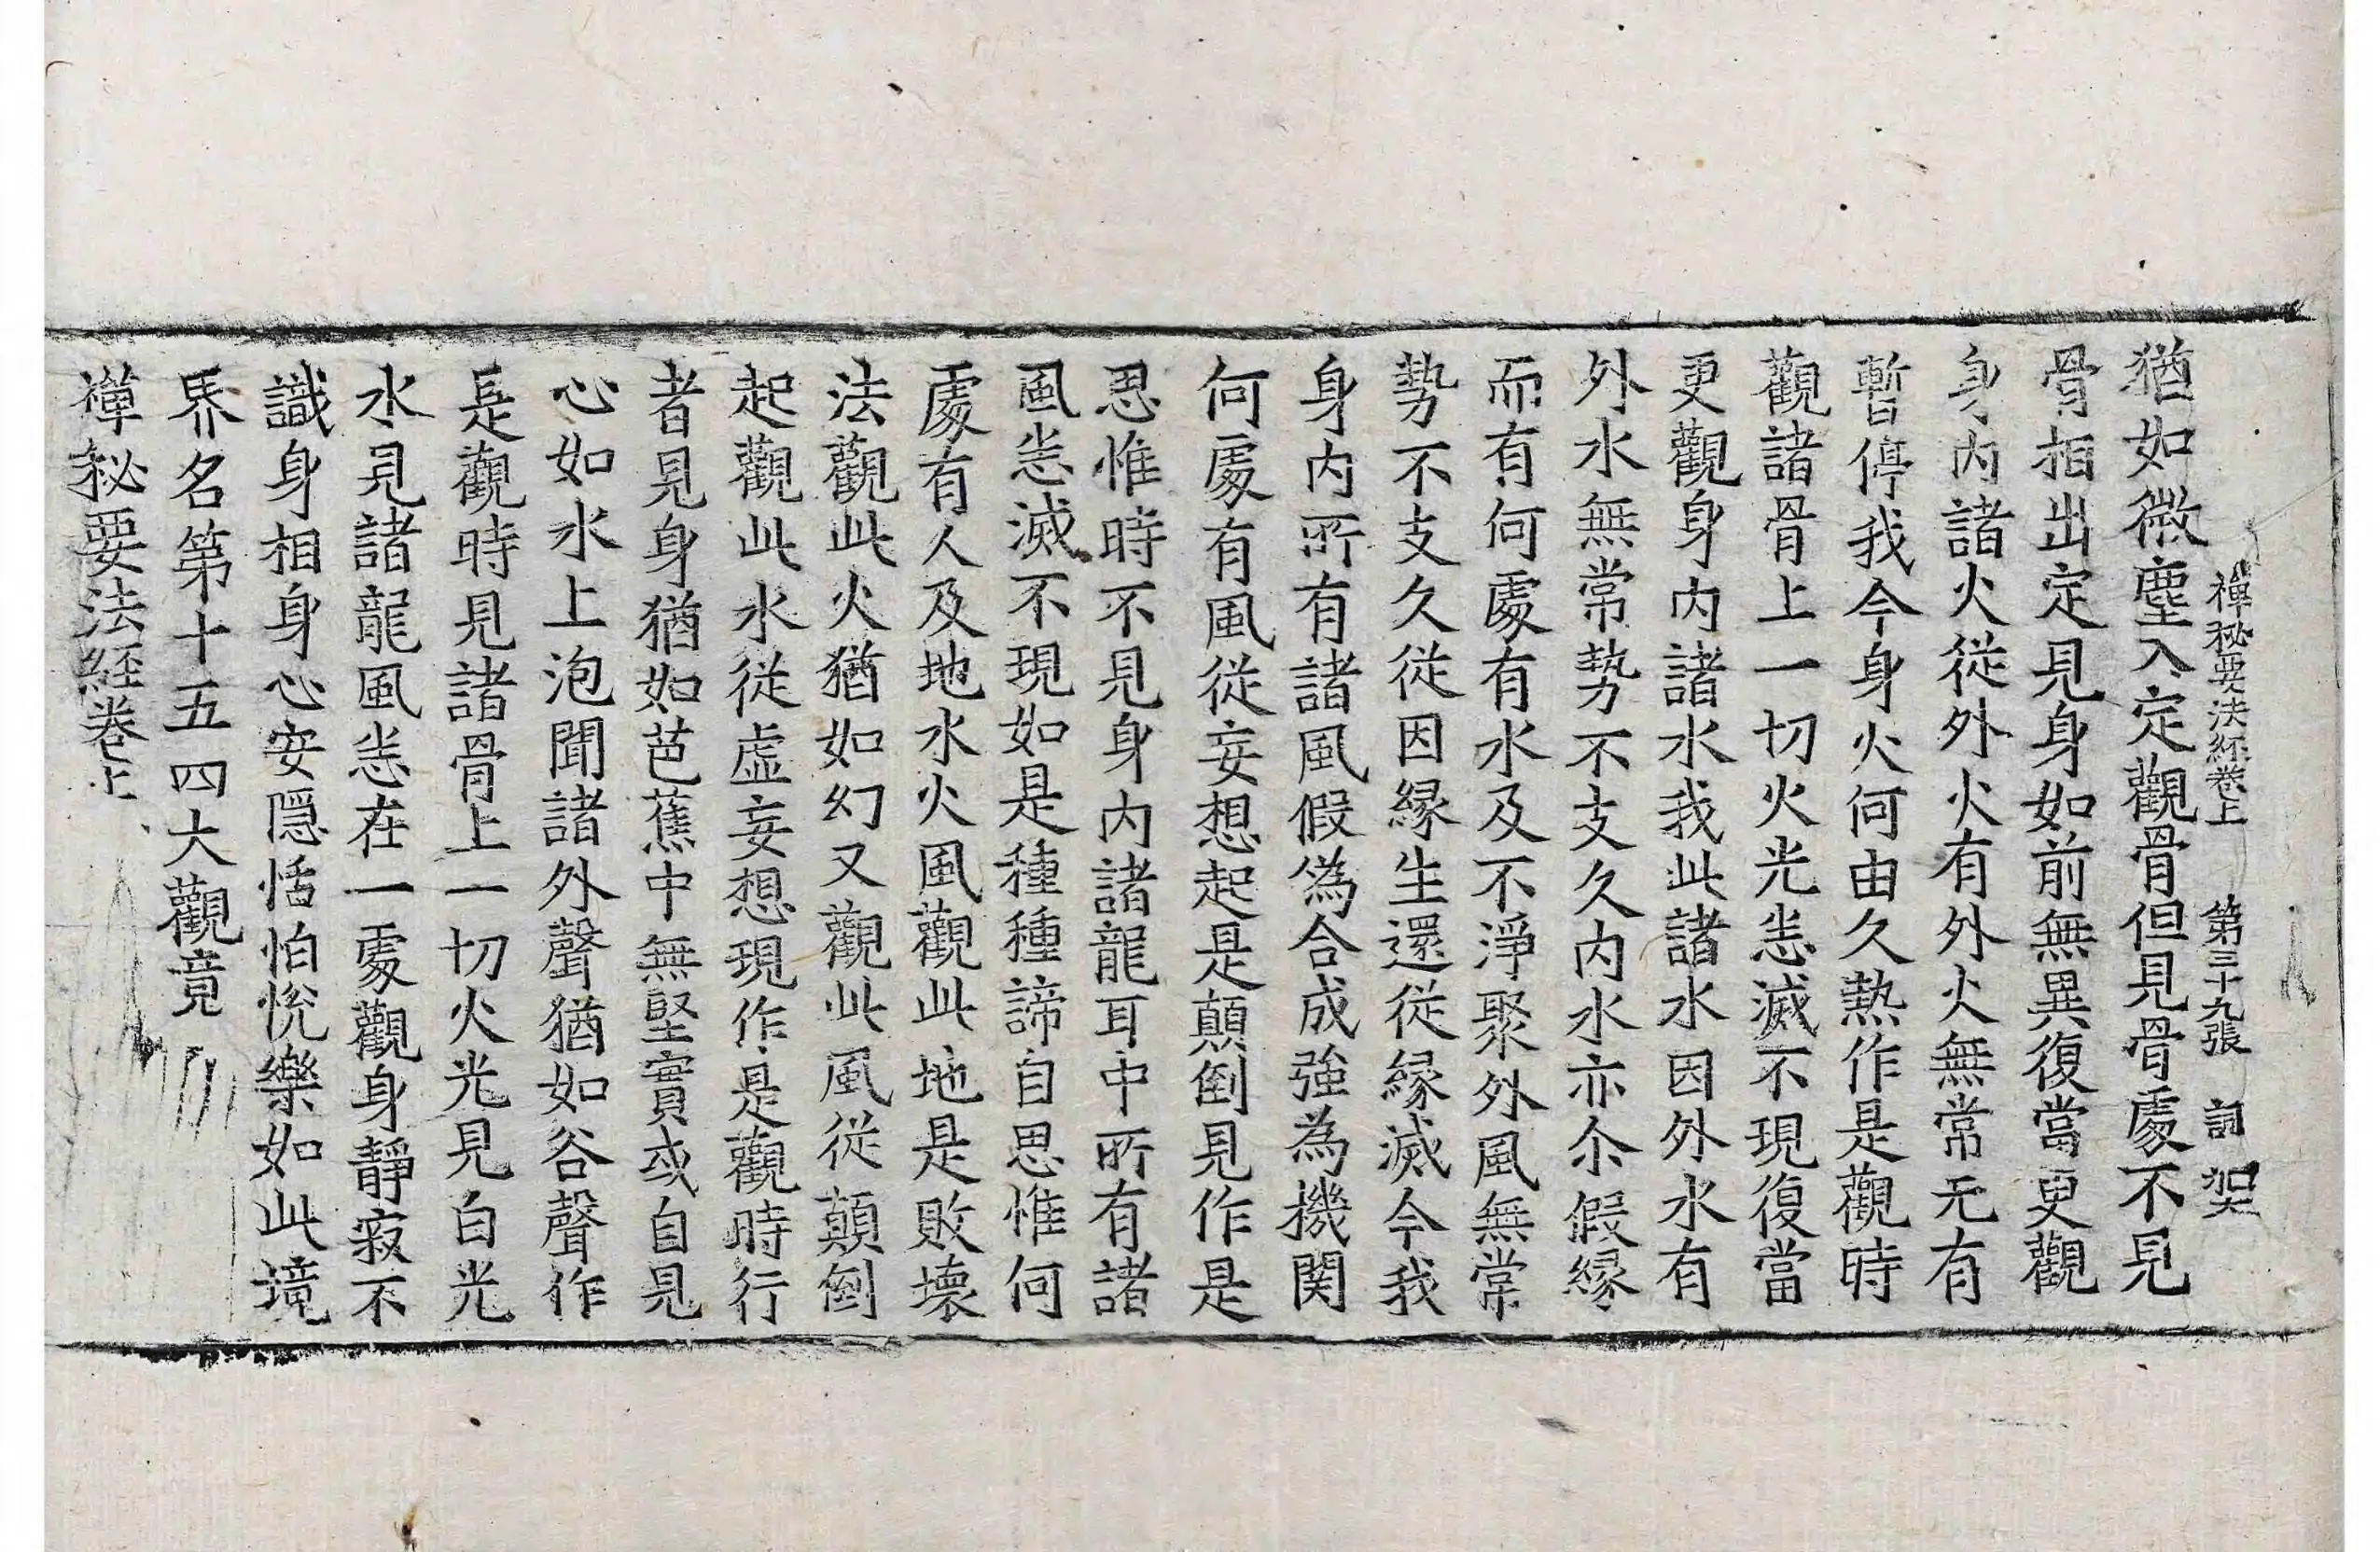 禪秘要法經卷上 第三十九張 訶 架
猶如微塵入定觀骨但見骨處不見
骨相出定見身如前無異復當更觀
身內諸火從外火有外火無常无有
暫停我今身火何由久熱作是觀時
觀諸骨上一切火光恙滅不現復當
更觀身內諸水我此諸水因外水有
外水無常勢不支久內水亦尒假緣
而有何處有水及不淨聚外風無常
勢不支久從因緣生還從緣滅今我
身內所有諸風假偽合成強為機関
何處有風從妄想起是顛倒見作是
思惟時不見身內諸龍耳中所有諸
風恙滅不現如是種種諦自思惟何
處有人及地水火風觀此地是敗壞
法觀此火猶如幻又觀此風從顛倒
起觀此水從虛妄想現作是觀時行
者見身猶如芭蕉中無堅實或自見
心如水上泡聞諸外聲猶如谷聲作
是觀時見諸骨上一切火光見白光
水見諸龍風恙在一處觀身靜寂不
識身相身心安隱恬怕悅樂如此境
界名第十五四大觀竟
禪秘要法經卷上